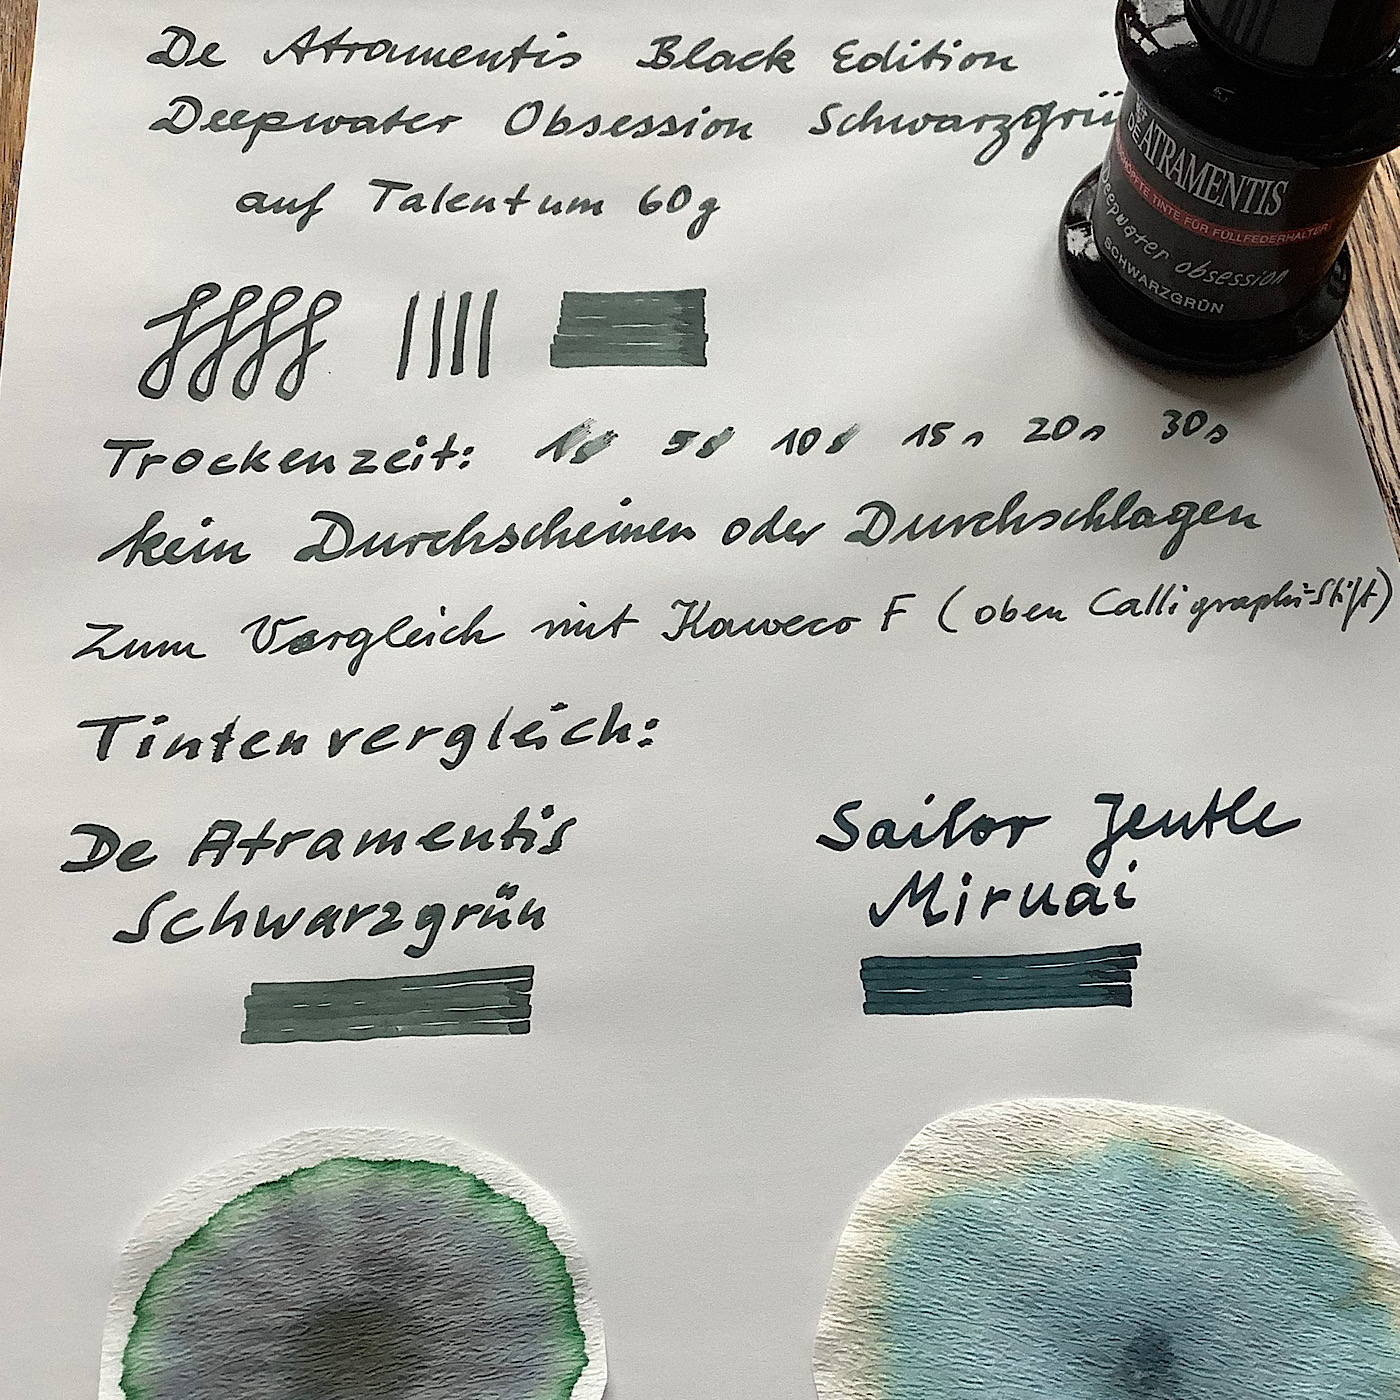 De Atramentis Black Edition
Deepwater Obsession Schwarzgrü
auf Talentum 60g
DE ATRAMENTIS
TINTE FÜR FÜLLFEDERHALTER
Deepwater obsession
SCHWARZGRÜN
Trockenzeit: 1s 5s 10s 15s 20s 30s
kein Durchscheinen oder Durchschlagen
Zum Vergleich mit Kaweco F (oben Calligraphi-Stift)
Tintenvergleich:
De Atramentis
Schwarzgrün
Sailor Jentle
Miruai